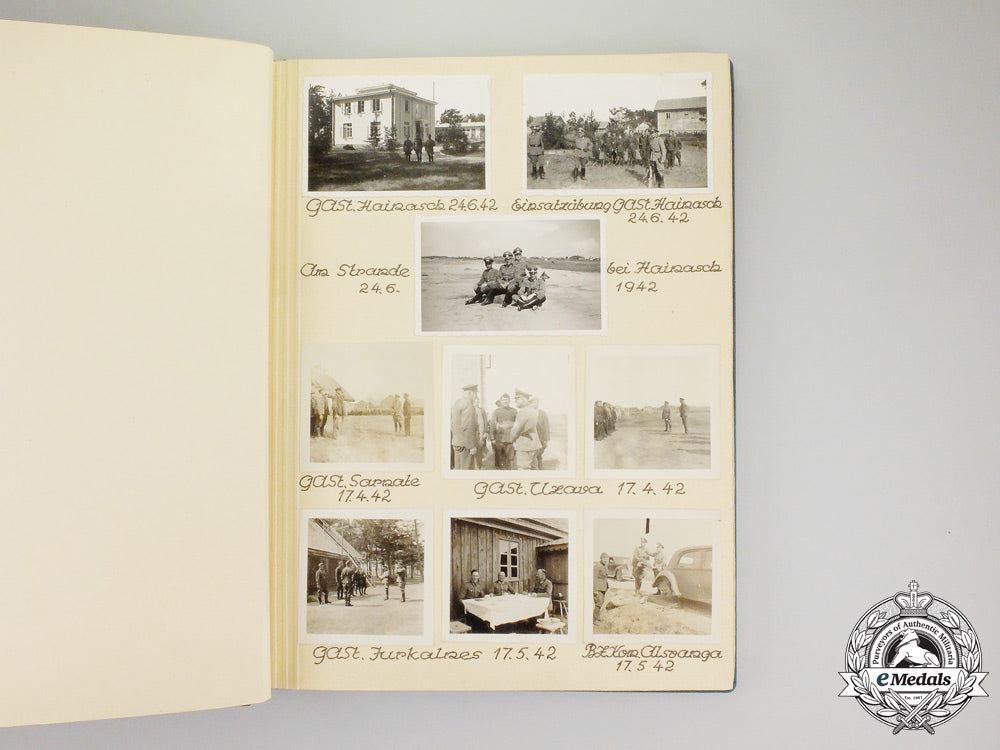 GASt. Hainasch 24.6.42
Einsatzübung GASt. Hainasch
24.6.42
Am Strande
24.6.
bei Hainasch
1942
GASt. Sarnate
17.4.42
GASt. Uzava 17.4.42
GASt. Jurkalnes 17.5.42
BZKom Alsvanga
17.5.42
Purveyors of Authentic Militaria
eMedals
Est. 1987